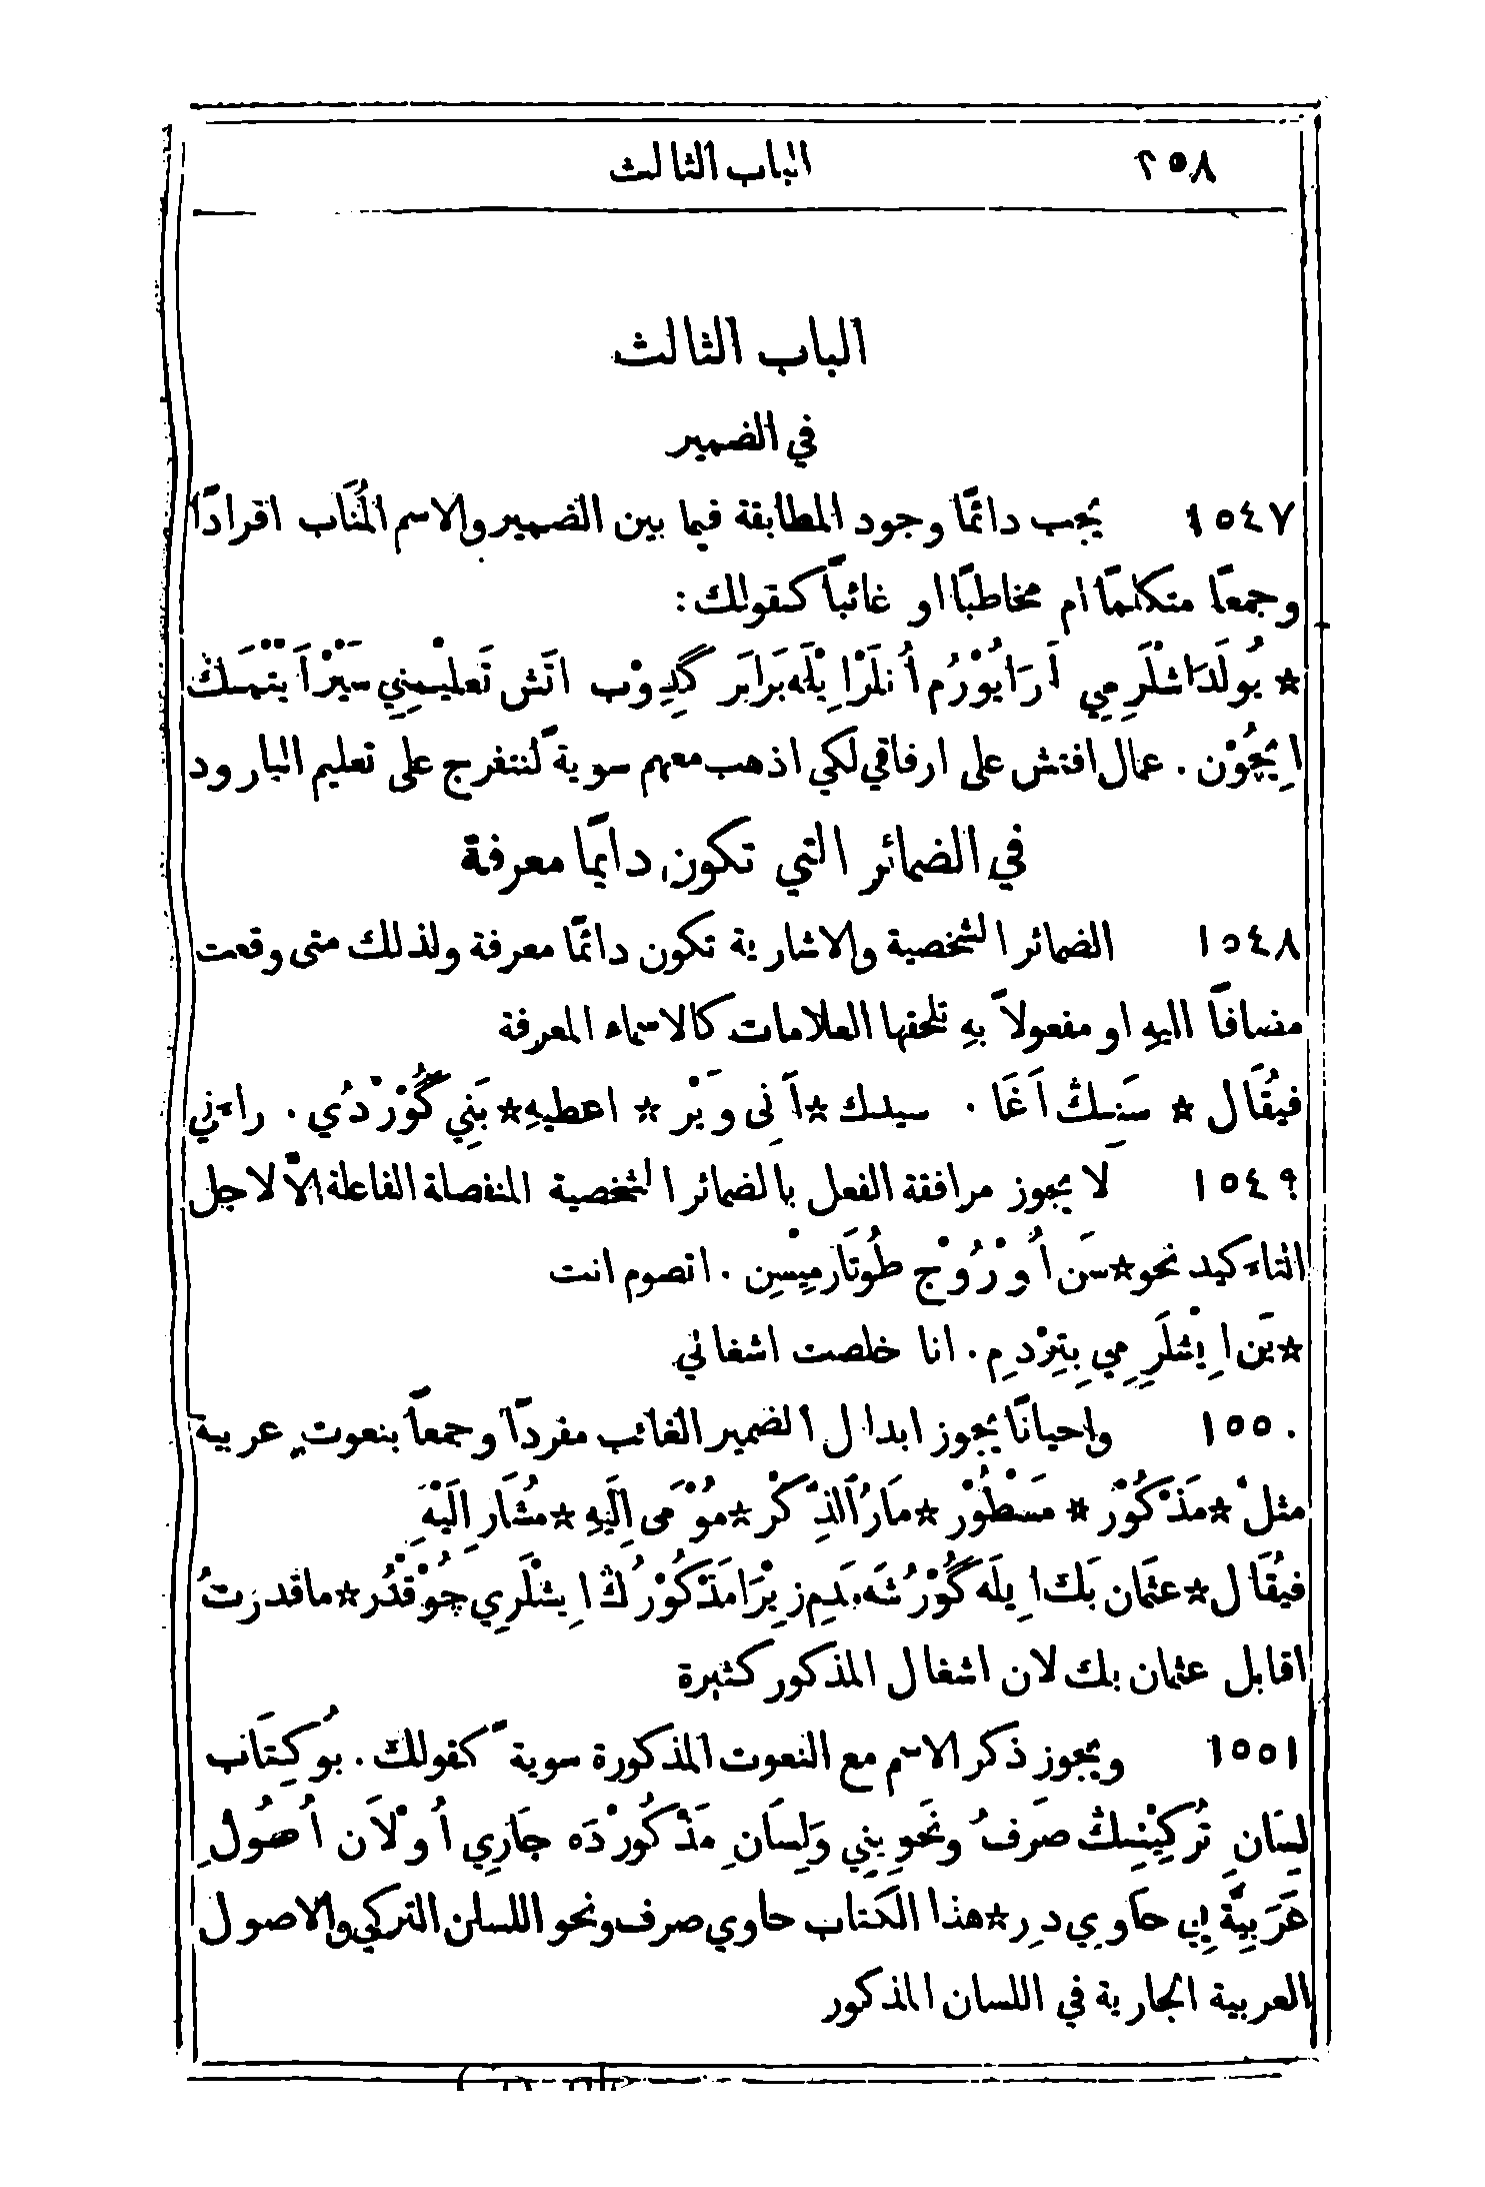 ٢٥٨ الباب الثالث
الباب الثالث
في الضمير
١٥٤٧ يجب دائمًا وجود المطابقة فيما بين الضمير والاسم المُنَاب افرادًا
وجمعًا متكلمًا ام مخاطبًا او غائبًا كقولك:
* يُولَدَاشْلَرِمِي اَرَايُوْرُم اُنلَرْاِيْلَه بَرَابَر گِدِوْب اتَش تَعلِيْمِنِي سَيْرْاَيتْمَكْ
اِيچُوْن . عمال افتش على ارفاقي لكي اذهب معهم سويةً لنتفرج على تعليم البارود
في الضمائر التي تكون دايمًا معرفة
١٥٤٨ الضمائر الشخصية والاشارية تكون دائمًا معرفة ولذلك متى وقعت
مضافًا اليهِ او مفعولاً بهِ تلحقها العلامات كالاسماء المعرفة
فيُقَال * سَنِڭ اَغَا . سيدك * اَنِى وَيْر * اعطيهِ * بَنِي گُوْرْدُي . راءني
١٥٤٩ لا يجوز مرافقة الفعل بالضمائر الشخصية المنفصلة الفاعلة الاَّ لاجل
التاءكيد نحو * سَن اُوْرُوْج طُوتَارمِيْسِن . اتصوم انت
* بَن اِيْشلَرِمِي بِتِرْدِم . انا خلصت اشغالي
١٥٥٠ واحيانًا يجوز ابدال الضمير الغائب مفردًا وجمعًا بنعوتٍ عربية
مثلْ * مَذْكُوْر * مَسْطُوْر * مَارُ ٱلذِّكْر * مُوْمَى اِلَيهِ * مُشَار اِلَيْهِ
فيُقَال * عثمَان بَك اِيلَه گُوْرُشَه‌مَدِم زِيْرَا مَذْكُوْرُڭ اِيشْلَرِي چُوْقْدُر * ماقدرتُ
اقابل عثمان بك لان اشغال المذكور كثيرة
١٥٥١ ويجوز ذكر الاسم مع النعوت المذكورة سويةً كقولك . بُو كِتَاب
لِسَانِ تُركِيْنِڭ صَرف ُ ونَحوِينِي وَلِسَانِ مَذْكُورْدَه جَارِي اُوْلاَن اُصُولِ
عَرَبِيَّةِيِي حَاوِي دِر * هذا الكتاب حاوي صرف ونحو اللسان التركي والاصول
العربية الجارية في اللسان المذكور